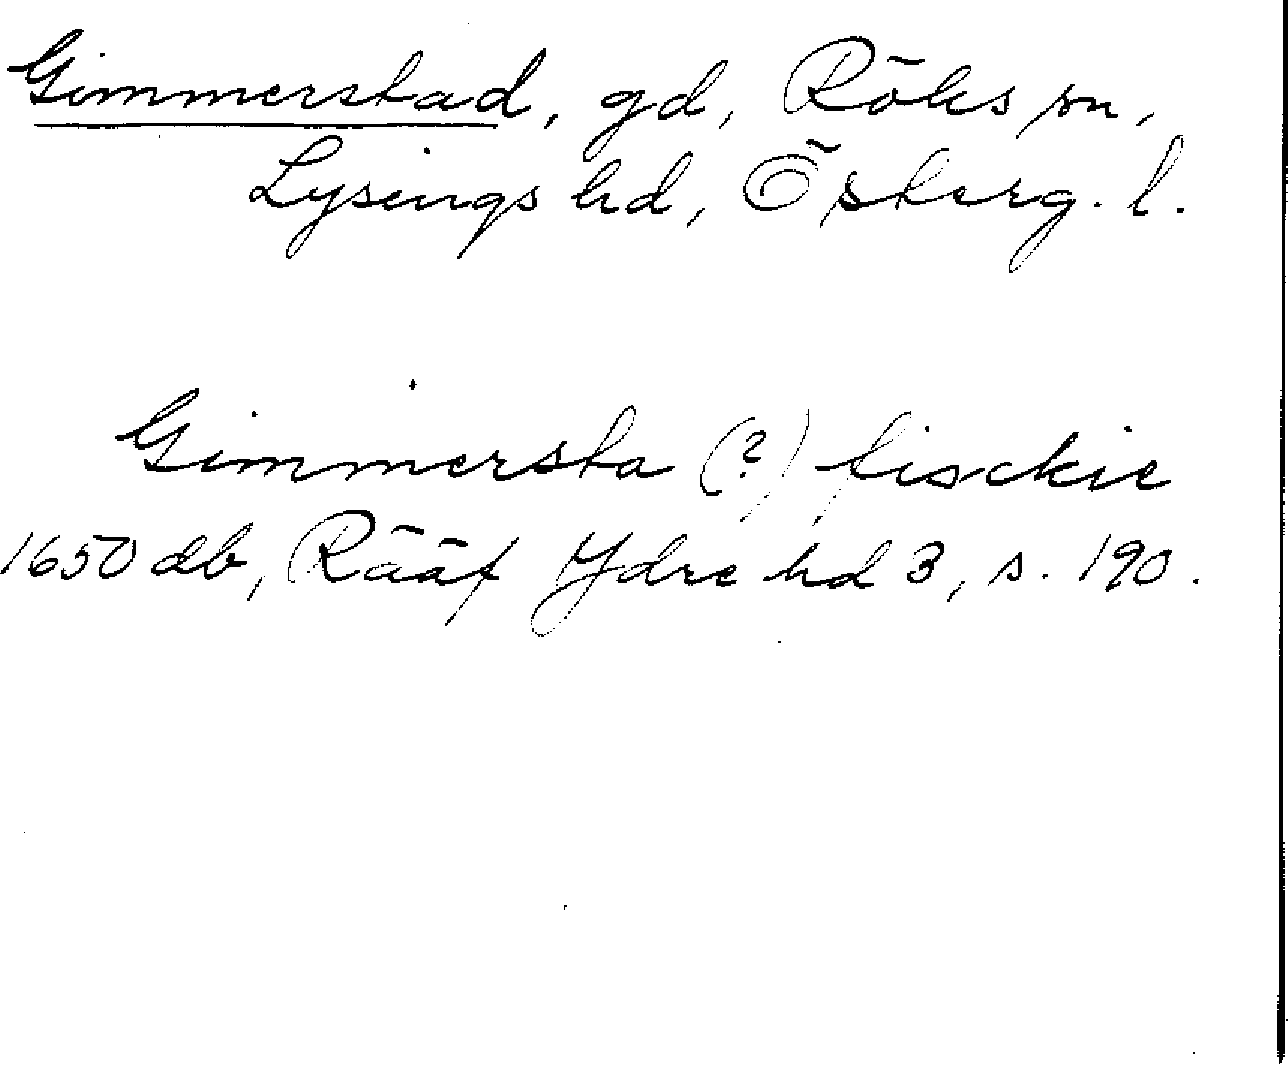 Gimmerstad, gd, Röks sn,
Lysings hd, Österg. l.
Gimmersta (?) fisckie
1650 db, Rääf Ydre hd 3, s. 190.